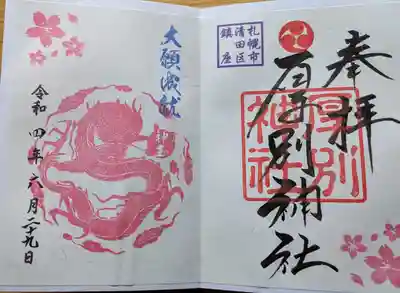 奉拝
厚別神社
厚別
神社
札幌市
清田区
鎮座
大願成就
令和四年六月二十九日